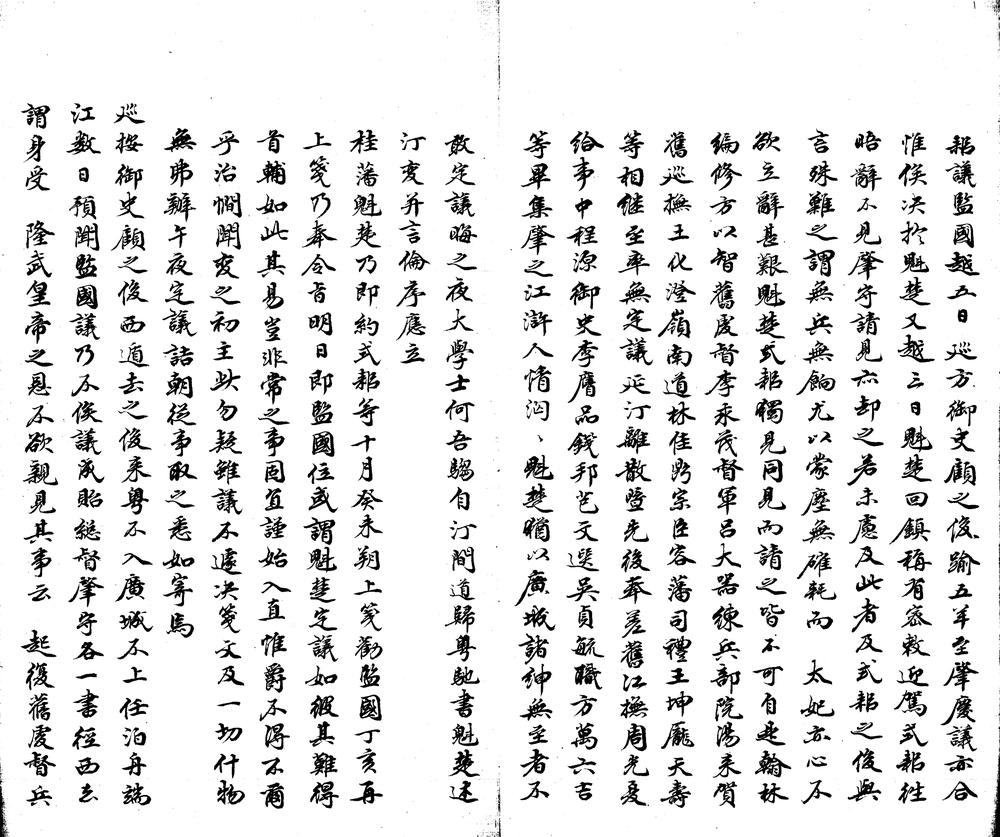 耜議監國越五日巡方御史顧之俊踰五羊至肇慶議亦合
惟俟决於魁楚又越三日魁楚回鎮稱有密敕迎駕式耜往
晤辭不見肇守請見亦却之若未慮及此者及式耜之俊與
言殊難之謂無兵無餉尤以蒙塵無確耗而 太妃亦心不
欲立辭甚艱魁楚式耜獨見同見而請之皆不可自是翰林
編修方以智舊虔督李永茂督軍呂大器練兵部院湯來賀
舊巡撫王化澄嶺南道林佳鼎宗臣容藩司禮王坤龐天壽
等相継至率無定議延汀離散曁先後奉差舊江撫周光夏
給事中程源御史李膺品錢邦芑文選吳貞毓職方萬六吉
等畢集肇之江滸人情洶、魁楚猶以廣城諸紳無至者不
敢定議晦之夜大學士何吾騶自汀間道歸粵馳書魁楚述
汀変并言倫序應立
桂藩魁楚乃即約式耜等十月癸未朔上笺勸監國丁亥再
上笺乃奉令旨明日即監國位或謂魁楚定議如彼其難得
首輔如此其易豈非常之事固宜謹始入直惟爵不得不爾
乎治憪聞変之初主此勿疑雖議不遽决笺文及一切什物
無弗辦午夜定議詰朝從事取之悉如寄焉
巡按御史顧之俊西遁去之俊来粤不入廣城不上任泊舟端
江数日預聞監國議乃不俟議成貽総督肇守各一書徑西去
謂身受 隆武皇帝之恩不欲親見其事云 起復舊虔督兵